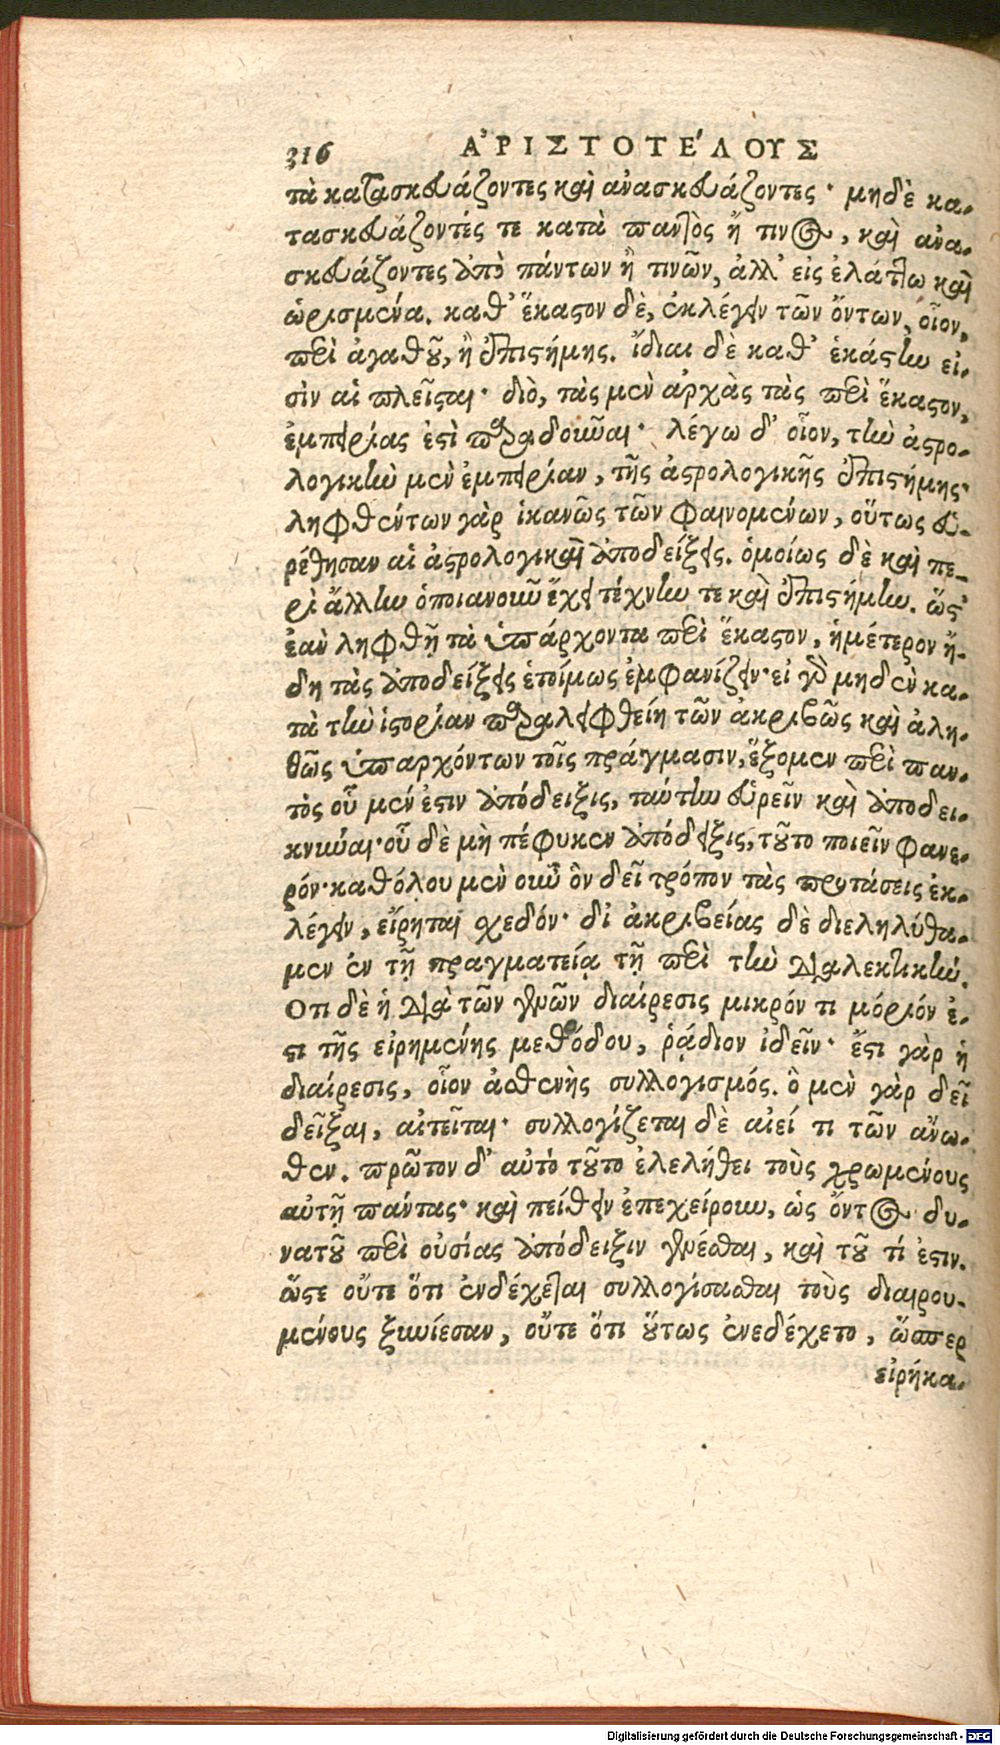 316 ἈΡΙΣΤΟΤΈΛΟΥΣ
τὰ κατασκευάζοντες καὶ ἀνασκευάζοντες· μηδὲ κα-
τασκευάζοντές τε κατὰ παντὸς ἤ τινος, καὶ ἀνα-
σκευάζοντες ἀπὸ πάντων ἢ τινῶν, ἀλλ' εἰς ἐλάττω καὶ
ὡρισμένα. καθ' ἕκαστον δὲ, ἐκλέγειν τῶν ὄντων, οἷον,
περὶ ἀγαθοῦ, ἢ ἐπιστήμης. ἴδιαι δὲ καθ' ἑκάστην εἰ-
σὶν αἱ πλεῖσται· διὸ, τὰς μὲν ἀρχὰς τὰς περὶ ἕκαστον,
ἐμπειρίας ἐστὶ παραδοῦναι· λέγω δ' οἷον, τὴν ἀστρο-
λογικὴν μὲν ἐμπειρίαν, τῆς ἀστρολογικῆς ἐπιστήμης·
ληφθέντων γὰρ ἱκανῶς τῶν φαινομένων, οὕτως εὑ-
ρέθησαν αἱ ἀστρολογικαὶ ἀποδείξεις. ὁμοίως δὲ καὶ πε-
ρὶ ἄλλην ὁποιανοῦν ἔχει τέχνην τε καὶ ἐπιστήμην. ὥστ'
ἐὰν ληφθῇ τὰ ὑπάρχοντα περὶ ἕκαστον, ἡμέτερον ἤ-
δη τὰς ἀποδείξεις ἑτοίμως ἐμφανίζειν· εἰ γὰρ μηδὲν κα-
τὰ τὴν ἱστορίαν παραλειφθείη τῶν ἀκριβῶς καὶ ἀλη-
θῶς ὑπαρχόντων τοῖς πράγμασιν, ἕξομεν περὶ παν-
τὸς οὗ μέν ἐστιν ἀπόδειξις, ταύτην εὑρεῖν καὶ ἀποδει-
κνύναι· οὗ δὲ μὴ πέφυκεν ἀπόδειξις, τοῦτο ποιεῖν φανε-
ρόν· καθόλου μὲν οὖν ὃν δεῖ τρόπον τὰς προτάσεις ἐκ-
λέγειν, εἴρηται σχεδόν· δι' ἀκριβείας δὲ διεληλύθα-
μεν ἐν τῇ πραγματείᾳ τῇ περὶ τὴν διαλεκτικήν.
Οτι δὲ ἡ διὰ τῶν γενῶν διαίρεσις μικρόν τι μόριόν ἐ-
στι τῆς εἰρημένης μεθόδου, ῥᾴδιον ἰδεῖν· ἔστι γὰρ ἡ
διαίρεσις, οἷον ἀσθενὴς συλλογισμός. ὃ μὲν γὰρ δεῖ
δεῖξαι, αἰτεῖται· συλλογίζεται δὲ αἰεί τι τῶν ἄνω-
θεν. πρῶτον δ' αὐτὸ τοῦτο ἐλελήθει τοὺς χρωμένους
αὐτῇ πάντας· καὶ πείθειν ἐπεχείρουν, ὡς ὄντος δυ-
νατοῦ περὶ οὐσίας ἀπόδειξιν γενέσθαι, καὶ τοῦ τί ἐστιν.
ὥστε οὔτε ὅτι ἐνδέχεται συλλογίσασθαι τοὺς διαιρου-
μένους ξυνίεσαν, οὔτε ὅτι οὕτως ἐνεδέχετο, ὥσπερ
εἰρήκα-
Digitalisierung gefördert durch die Deutsche Forschungsgemeinschaft - DFG